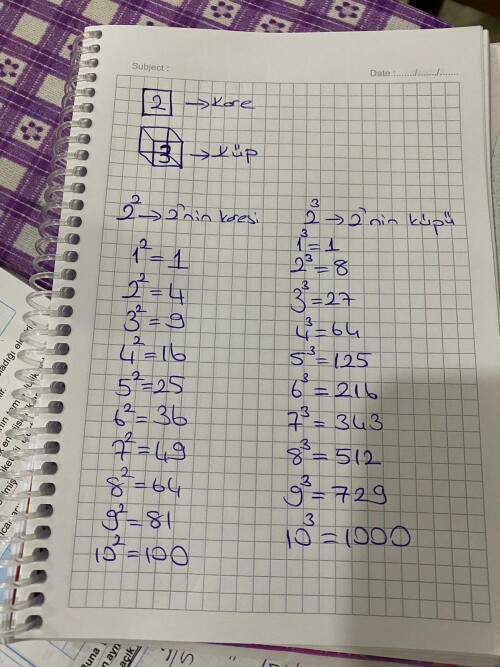 Subject :
Date : ....../....../......
2 → Kare
3 → Küp
2² → 2'nin karesi
1² = 1
2² = 4
3² = 9
4² = 16
5² = 25
6² = 36
7² = 49
8² = 64
9² = 81
10² = 100
2³ → 2'nin küpü
1³ = 1
2³ = 8
3³ = 27
4³ = 64
5³ = 125
6³ = 216
7³ = 343
8³ = 512
9³ = 729
10³ = 1000